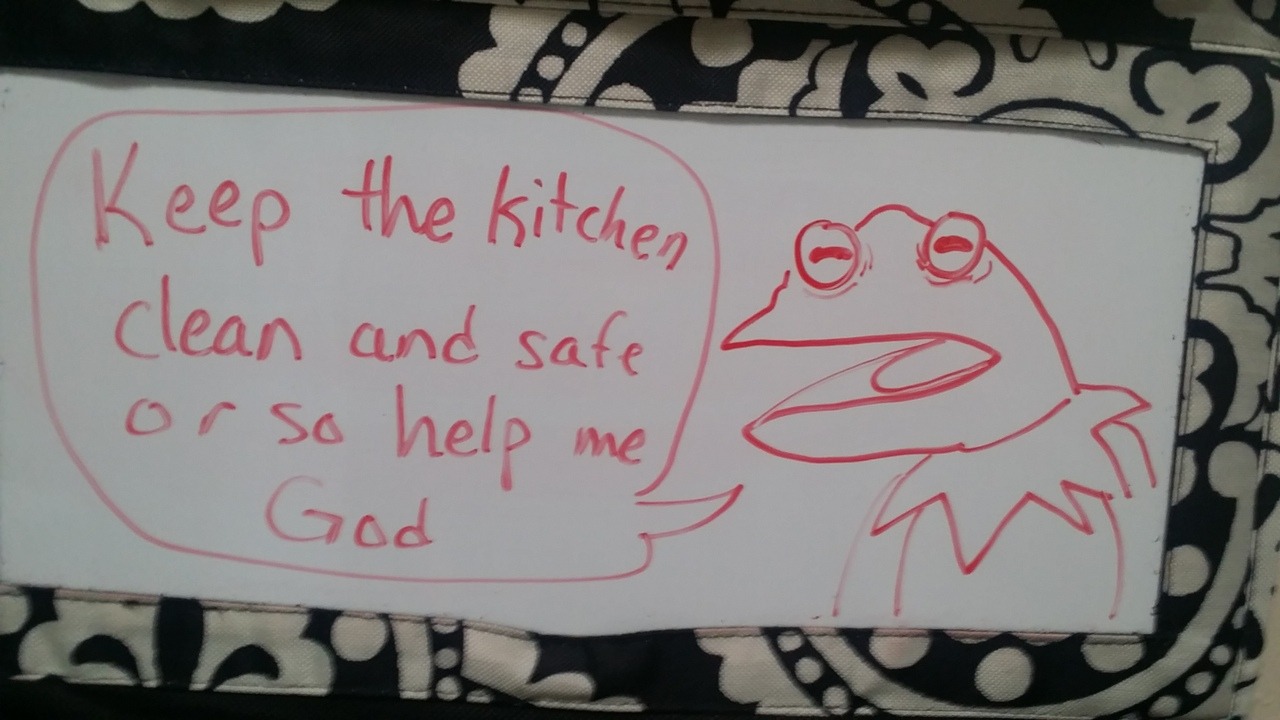 Keep the kitchen
clean and safe
or so help me
God